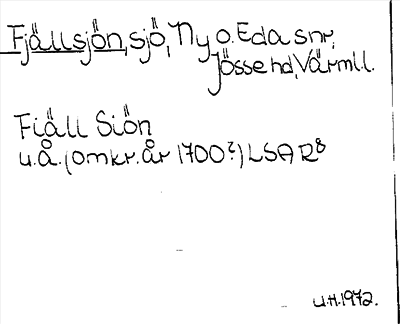 Fjällsjön, sjö, Ny o. Eda snr,
Jösse hd, Värml.l.
Fiäll Siön
u.å. (omkr. år 1700?) LSA R8
U.H. 1972.